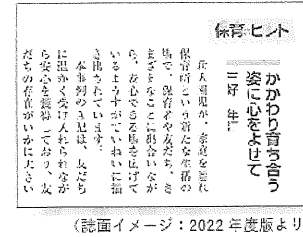 保育のヒント
かかわり育ち合う
姿に心をよせて
三好 年江
新入園児が、家庭を離れ
保育所という新たな生活の
場で、保育者や友だち、さ
まざまなことに出合いなが
ら、安心できる場を広げて
いるようすがていねいに描
き出されています。
本事例のA児は、友だち
に温かく受け入れられなが
ら安心を獲得しており、友
だちの存在がいかに大きい
(誌面イメージ：2022年度版より